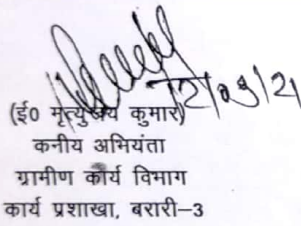 12/03/21
(ई० मृत्युंजय कुमार)
कनीय अभियंता
ग्रामीण कार्य विभाग
कार्य प्रशाखा, बरारी–3